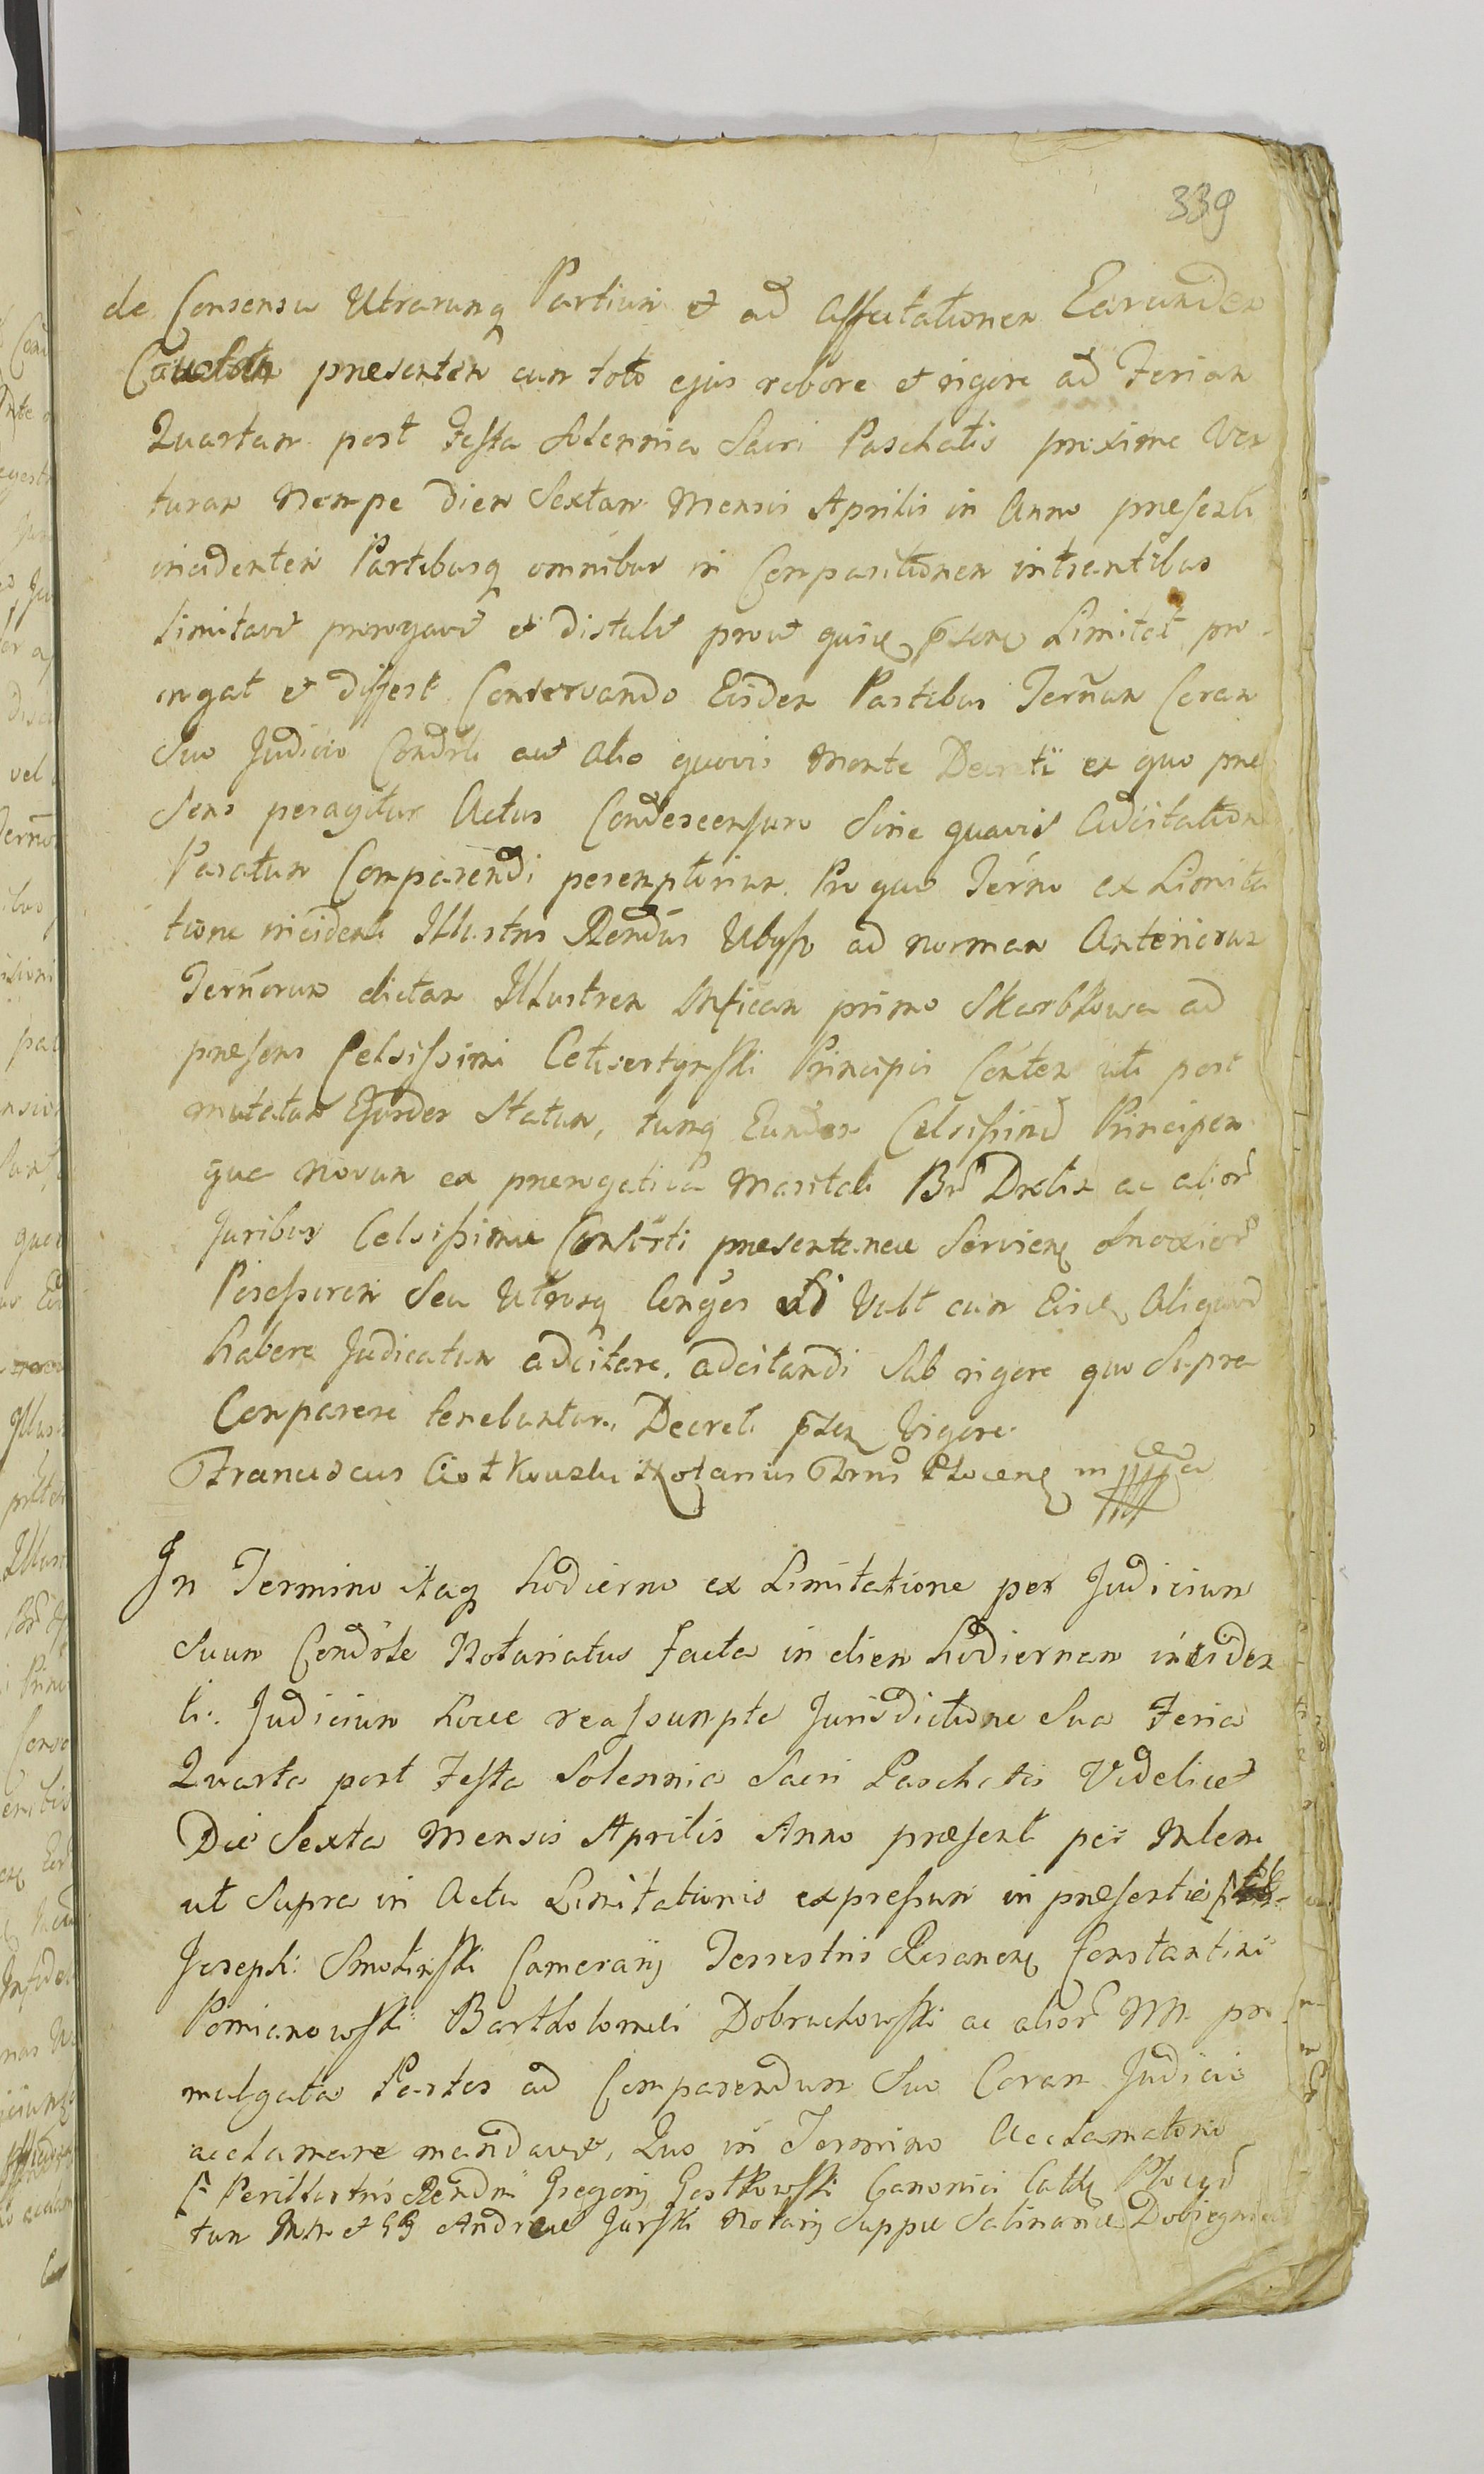 339
de Consensu Utrarunq Partium et ad Affectationem Earundem
presentem cum toto ejus robore et rigore ad Feriam
Quartam post Festa Solennia Sacri Paschatis proxime Ven
turam Nempe diem Sextam Mensis Aprilis in Anno præsenti
incidentem Partibusq omnibus in Comparitionem intrantibus
limitavit prorogavit et distulit prout quidē pñtem Limitat pro
rogat et differt Conservando Eisdem Partibus Ternum Coram
Suo Judicio Condrli aut alio quovis Monte Decreti ex quo præ
sens peragitur Actus Condescensuro Sine quavis Adcitatione
Paratum Comparendi peremptorium. Pro quo Terno ex Limita
tione incidenti Illustris Rendus Ubysz ad normam Anteriorum
Ternorum dictam Illustrem Mficam primo Skarbkowa ad
præsens Celsissimi Cetwertynski Principis Contem uti post
mutatum Ejusdem Statum, tunq Eundem Celsissimū Principem
qua Novum ex prærogativa Maritali Bnr Drelix ac alior
Juribus Celsissimæ Consorti præsentaneæ Servien obnoxior
Possessorem Seu Utrosq Conges Si Vult cum Eisd Aliquod
habere Judicatum adcitare, adcitandi Sub rigore quo Supra
Comparere tenebuntur. Decreti pñten Vigore.
Franciscus Ciotkowski Notarius Trnis Plocens mppa
In Termino itaq hodierno ex Limitatione per Judicium
Suum Condrle Notariatus facta in diem hodiernam inciden
ti. Judicium hocce reassumpta Jurisdictione Sua Feria
Quarta post Festa Solennia Sacri Paschatis Videlicet
Die Sexta Mensis Aprilis Anno præsenti per Mlem
ut Supra in Actu Limitationis expressum in præsentia
Josephi Smolinski Camerarij Terrestris Rosanen Constantini
Pomianowski Bartholomei Dobruchowski ac alior MM. pro
mulgata Partes ad Comparendum Suo Coram Judicio
acclamare mandavit, Quo in Termino Acclamatorio
Perillustris Rendmi Gregorij Gostkowski Canonici Cathl
tum MM et GG Andreæ Jurski Notarij Suppæ Salinariæ Dobiegnie